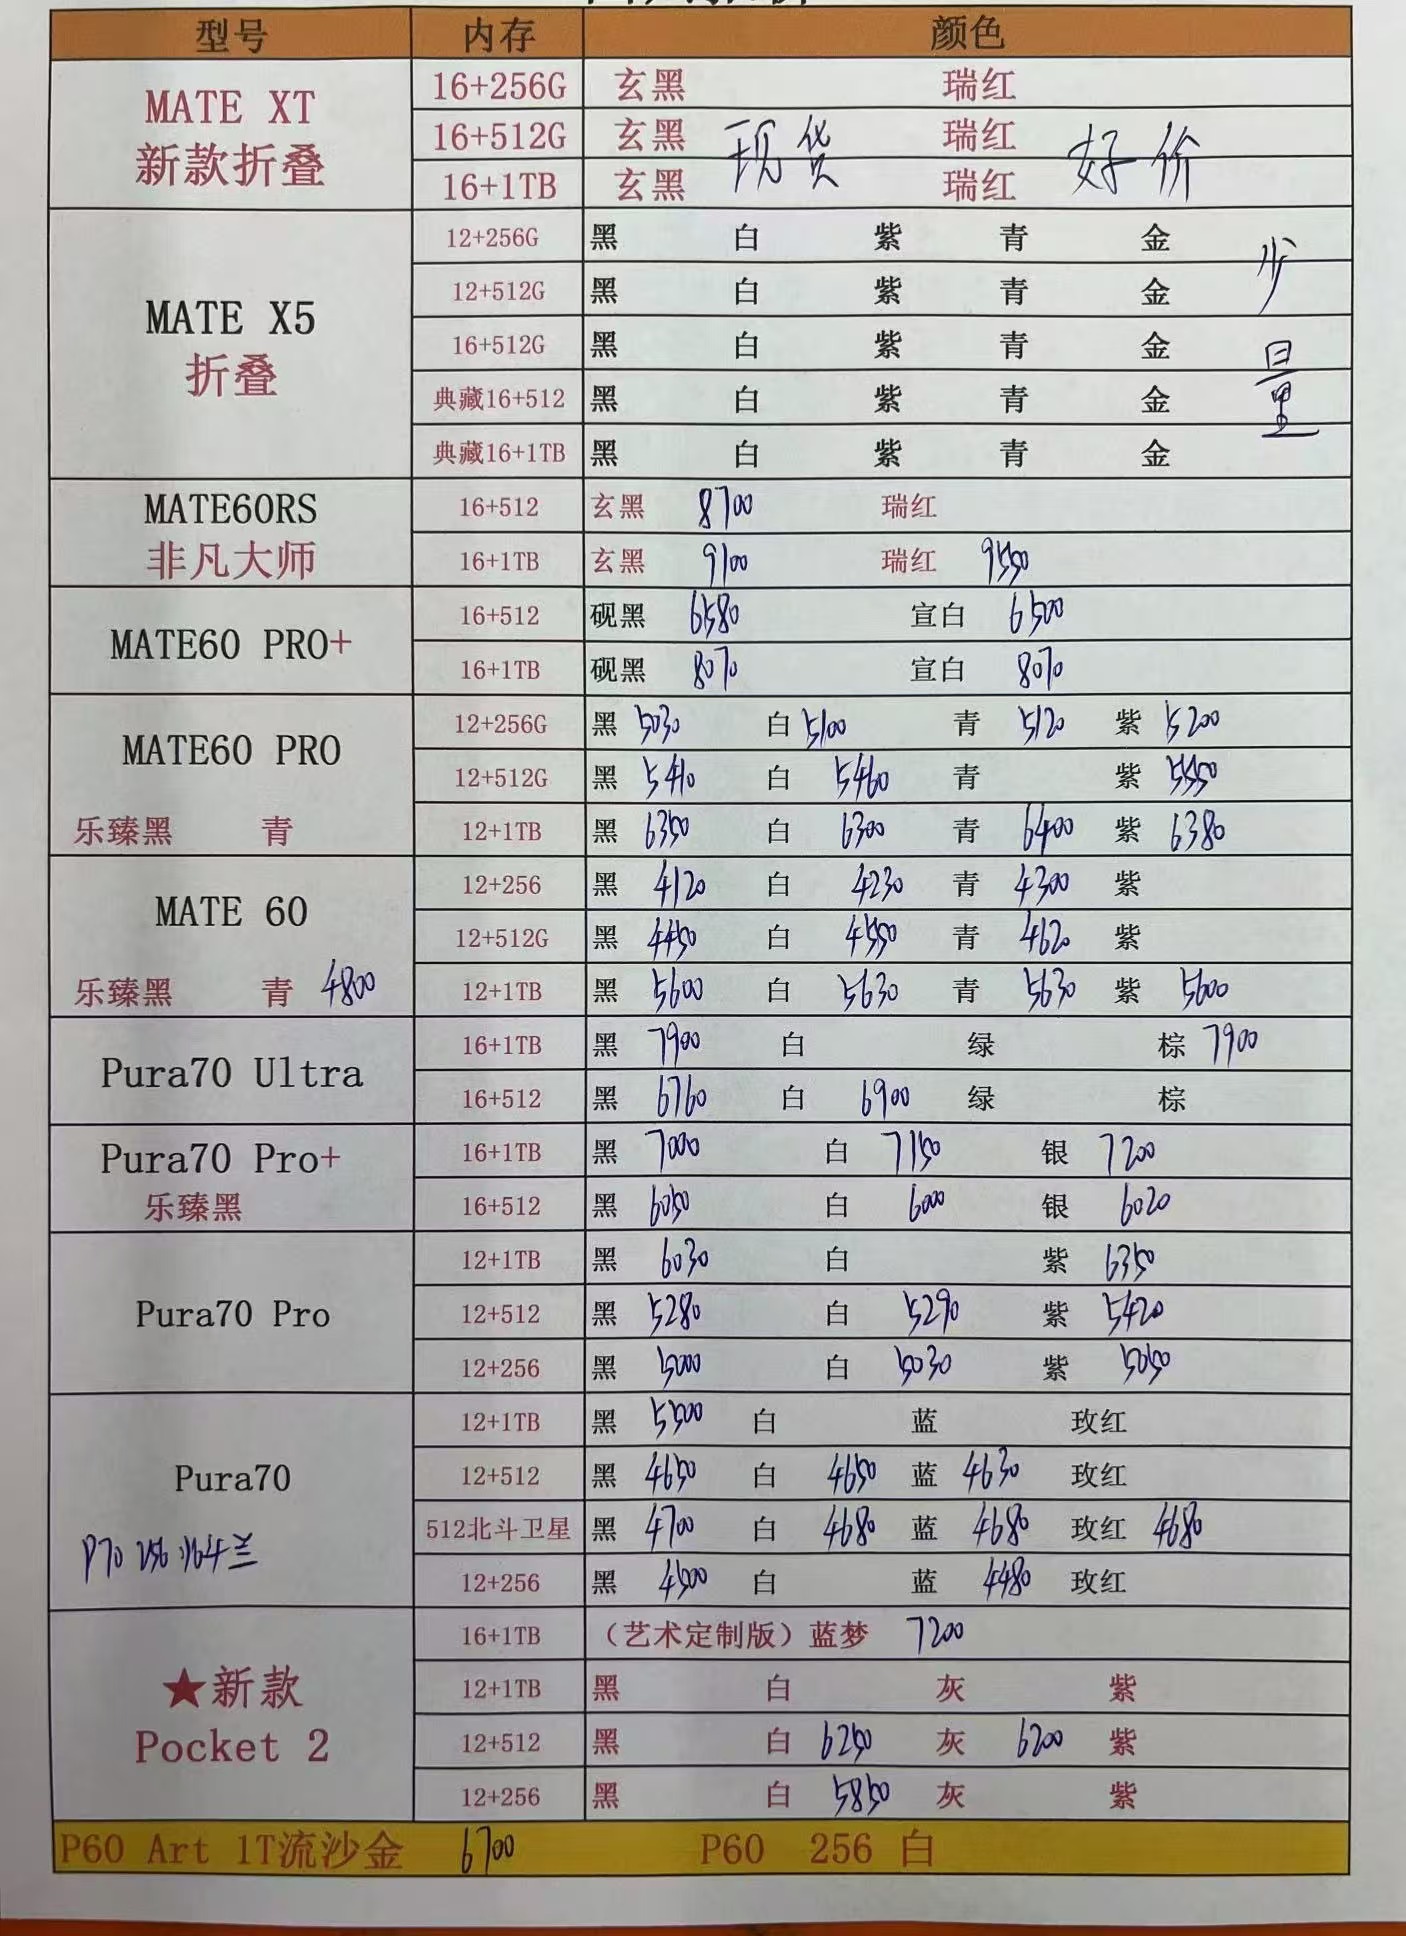 型号 内存 颜色
MATE XT 新款折叠
16+256G 玄黑 瑞红
16+512G 玄黑 现货 瑞红 好价
16+1TB 玄黑 瑞红
MATE X5 折叠 少量
12+256G 黑 白 紫 青 金
12+512G 黑 白 紫 青 金
16+512G 黑 白 紫 青 金
典藏16+512 黑 白 紫 青 金
典藏16+1TB 黑 白 紫 青 金
MATE60RS 非凡大师
16+512 玄黑 8700 瑞红
16+1TB 玄黑 9100 瑞红 9550
MATE60 PRO+
16+512 砚黑 6580 宣白 6500
16+1TB 砚黑 8070 宣白 8070
MATE60 PRO
12+256G 黑 5030 白 5100 青 5120 紫 5200
12+512G 黑 5410 白 5460 青 紫 5550
乐臻黑 青
12+1TB 黑 6350 白 6300 青 6400 紫 6380
MATE 60
12+256 黑 4120 白 4230 青 4300 紫
12+512G 黑 4450 白 4550 青 4620 紫
乐臻黑 青 4800
12+1TB 黑 5600 白 5630 青 5630 紫 5600
Pura70 Ultra
16+1TB 黑 7900 白 绿 棕 7900
16+512 黑 6760 白 6900 绿 棕
Pura70 Pro+
乐臻黑
16+1TB 黑 7000 白 7150 银 7200
16+512 黑 6050 白 6000 银 6020
Pura70 Pro
12+1TB 黑 6030 白 紫 6350
12+512 黑 5280 白 5290 紫 5420
12+256 黑 5000 白 5030 紫 5050
Pura70
12+1TB 黑 5500 白 蓝 玫红
12+512 黑 4650 白 4650 蓝 4630 玫红
P70 256
512北斗卫星 黑 4700 白 4680 蓝 4680 玫红 4680
12+256 黑 4500 白 蓝 4480 玫红
★新款
Pocket 2
16+1TB （艺术定制版）蓝梦 7200
12+1TB 黑 白 灰 紫
12+512 黑 白 6250 灰 6200 紫
12+256 黑 白 5850 灰 紫
P60 Art 1T流沙金 6700 P60 256 白